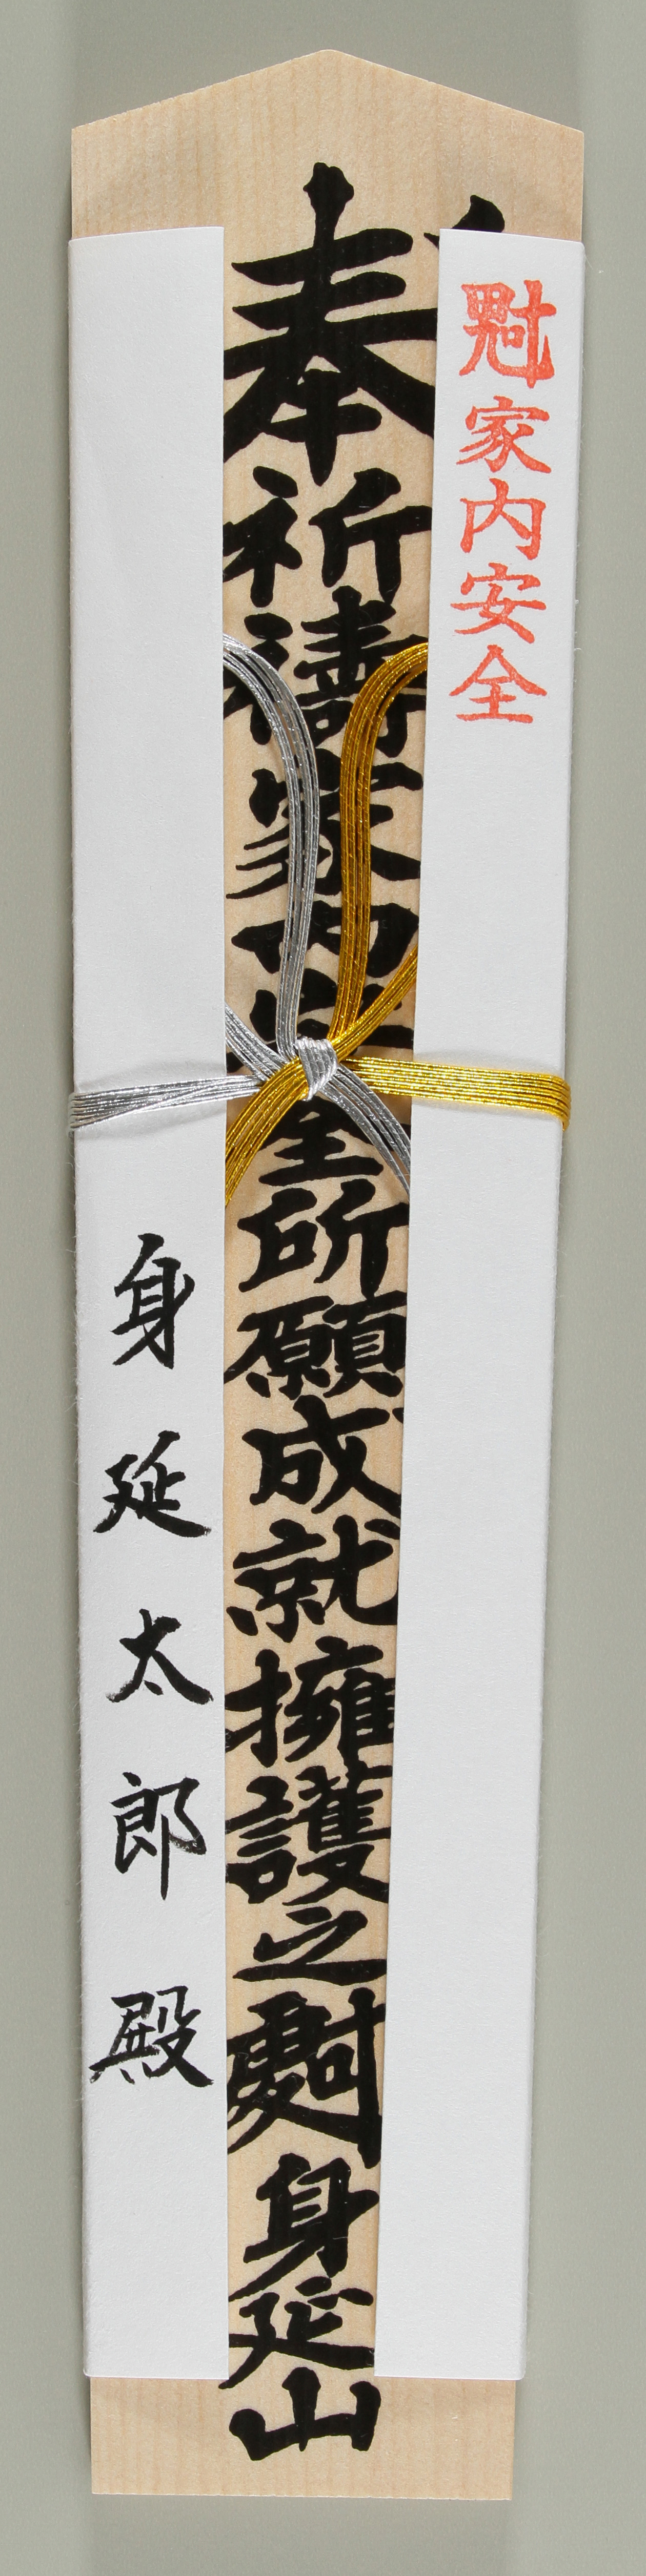 家内安全
奉祈禱家内安全所願成就擁護之 身延山
身延太郎殿